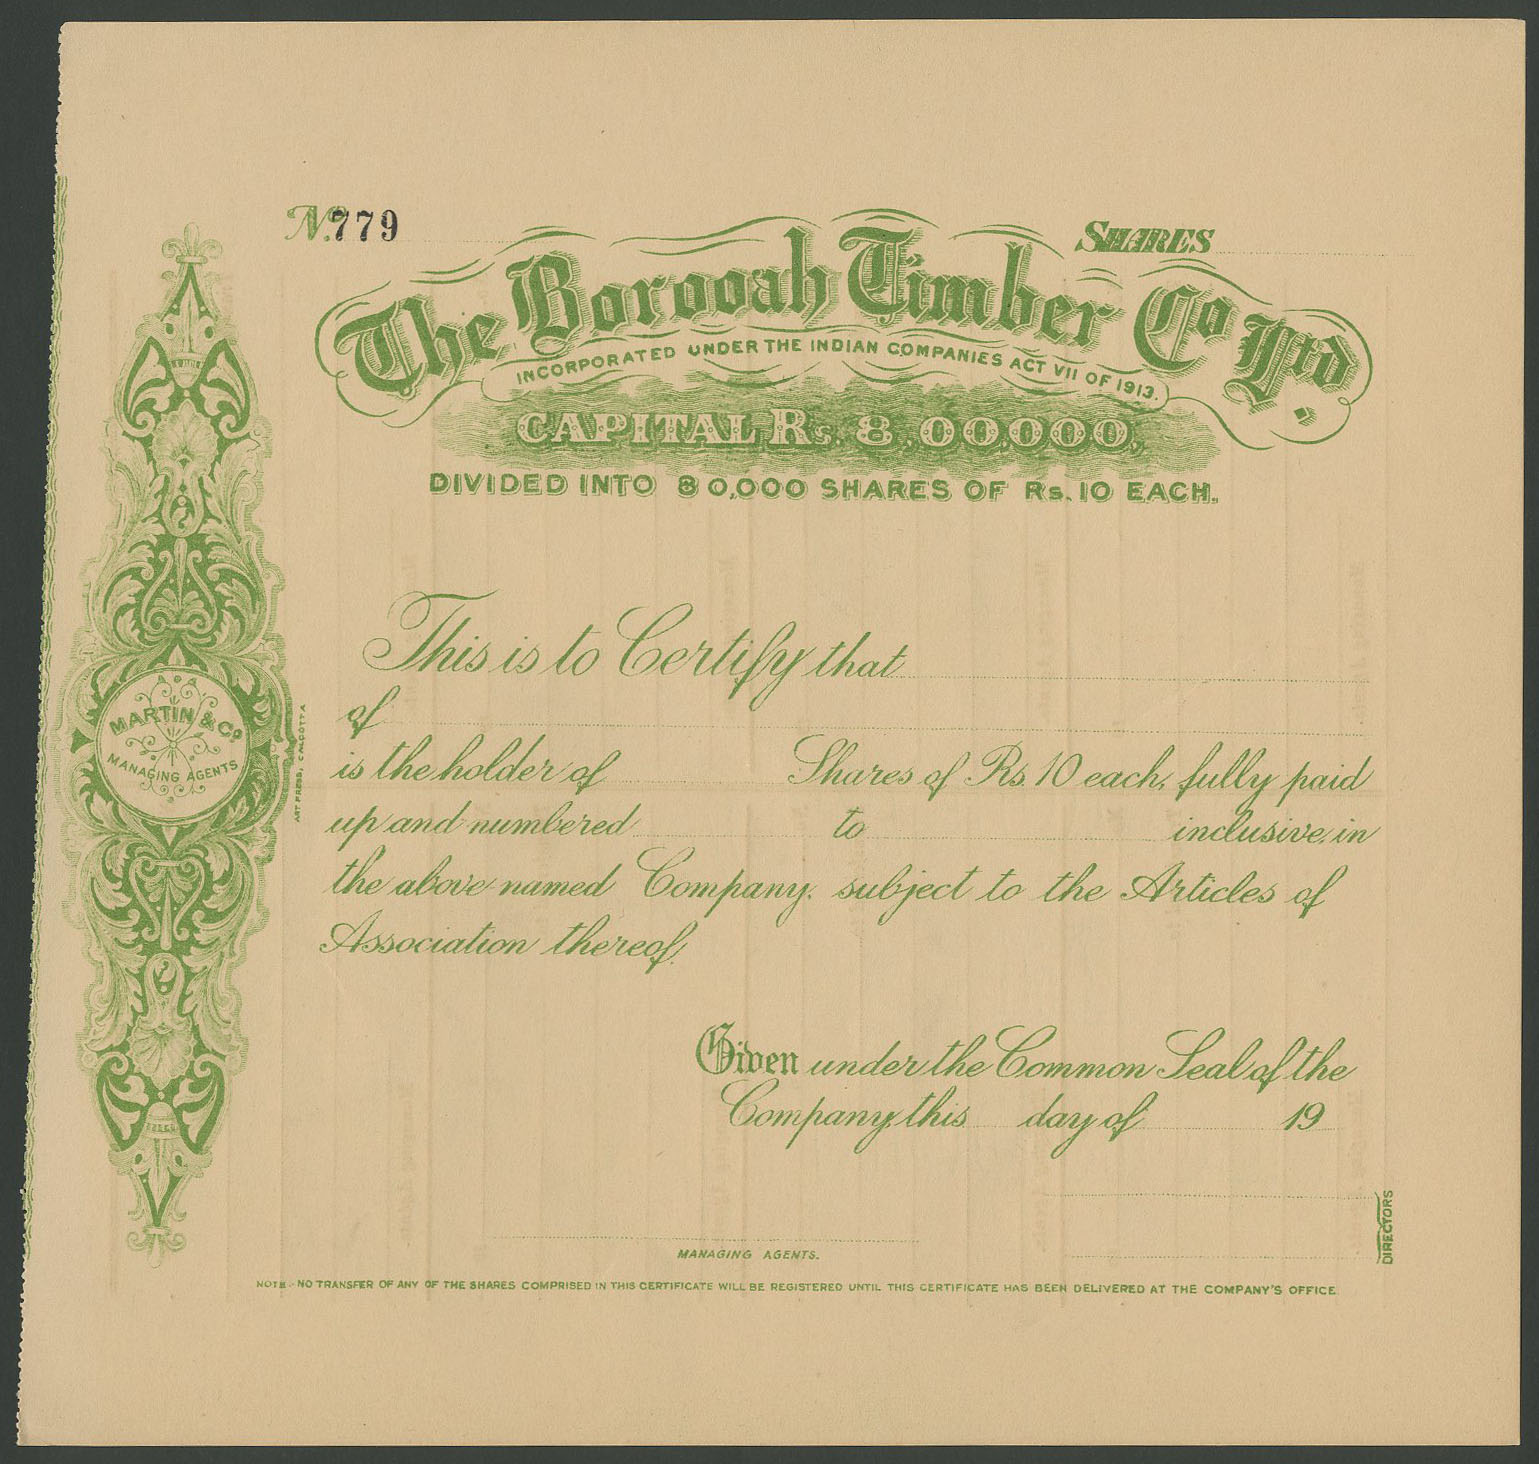 No. 779
SHARES
The Borooah Timber Co Ltd.
INCORPORATED UNDER THE INDIAN COMPANIES ACT VII OF 1913.
CAPITAL Rs. 8,00,000,
DIVIDED INTO 80,000 SHARES OF Rs. 10 EACH.
This is to Certify that
of
is the holder of Shares of Rs. 10 each, fully paid
up and numbered to inclusive, in
the above named Company, subject to the Articles of
Association thereof.
Given under the Common Seal of the
Company, this day of 19
DIRECTORS
MANAGING AGENTS.
NOTE:- NO TRANSFER OF ANY OF THE SHARES COMPRISED IN THIS CERTIFICATE WILL BE REGISTERED UNTIL THIS CERTIFICATE HAS BEEN DELIVERED AT THE COMPANY'S OFFICE.
MARTIN & Co.
MANAGING AGENTS
ART PRESS, CALCUTTA